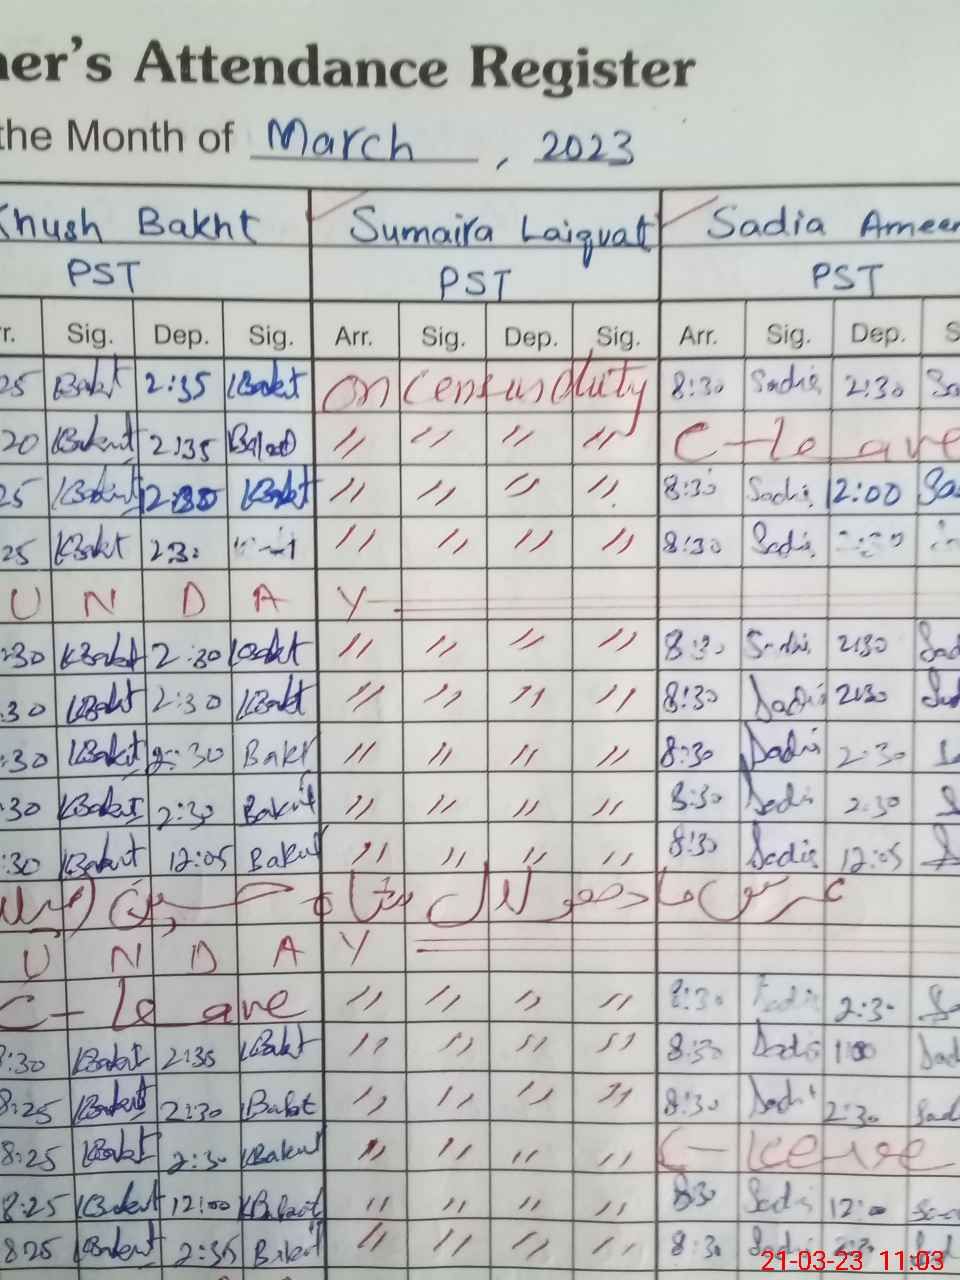 ner's Attendance Register
the Month of March, 2023
Khush Bakht Sumaira Laiquat Sadia Ameen
PST PST PST
r. Sig. Dep. Sig. Arr. Sig. Dep. Sig. Arr. Sig. Dep. S
25 Bakt 2:35 KBakt on census duty 8:30 Sadia 2:30 Sa
20 KBakht 2:35 " " " " C-leave
25 KBakht KBakt " " " " 8:30 Sadia 12:00 Sa
25 KBakt 2:3 " " " " 8:30 Sadia
U N D A Y
:30 KBakt 2:30 KBakt " " " " 8:30 Sadia 2:30 Sad
:30 KBakt 2:30 KBakt " " " " 8:30 Sadia 2:30 Sad
:30 KBakt 2:30 Bakt " " " " 8:30 Sadia 2:30 S
:30 KBakt 2:30 Bakht " " " " 8:30 Sadia 2:30 S
:30 KBakht 12:05 Bakht " " " " 8:30 Sadia 12:05 S
U N D A Y
C-leave " " " " 8:30 Sadia 2:30 Sa
8:30 KBakt 2:35 KBakt " " " " 8:30 Sadia 1:00 Sad
8:25 KBakht 2:30 Bakht " " " " 8:30 Sadia 2:30 Sad
8:25 KBakt 2:30 KBakht " " " " C-leave
8:25 KBakht 12:00 KBakht " " " " 8:30 Sadia 12:00 Sad
825 KBakht 2:35 Bakht " " " " 8:30 Sadia
21-03-23 11:03